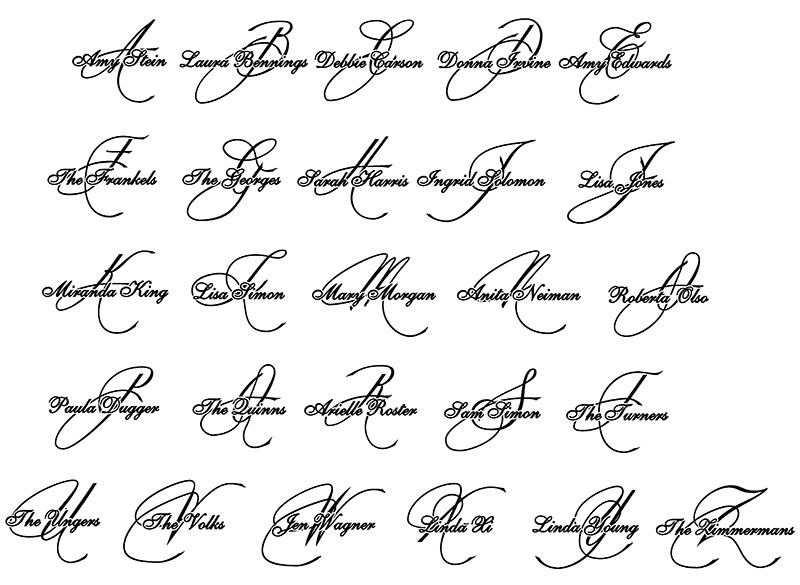 Amy Stein Laura Bennings Debbie Carson Donna Irvine Amy Edwards
The Frankels The Georges Sarah Harris Ingrid Solomon Lisa Jones
Miranda King Lisa Simon Mary Morgan Anita Neiman Roberta Olso
Paula Dugger The Quinns Arielle Roster Sam Simon The Turners
The Ungers The Volks Jen Wagner Linda Xi Linda Young The Zimmermans